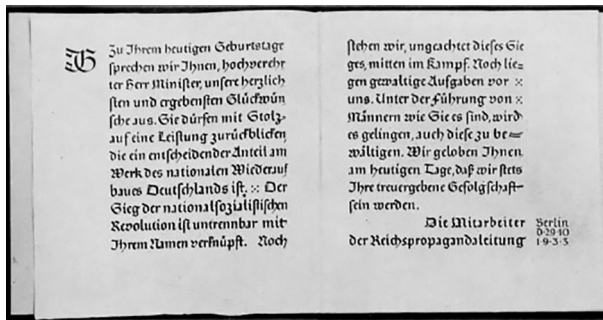 Zu Ihrem heutigen Geburtstage
sprechen wir Ihnen, hochverehr
ter Herr Minister, unsere herzlich
sten und ergebensten Glückwün
sche aus. Sie dürfen mit Stolz
auf eine Leistung zurückblicken,
die ein entscheidender Anteil am
Werk des nationalen Wiederauf
baues Deutschlands ist. Der
Sieg der nationalsozialistischen
Revolution ist untrennbar mit
Ihrem Namen verknüpft. Noch
stehen wir, ungeachtet dieses Sie
ges, mitten im Kampf. Noch lie-
gen gewaltige Aufgaben vor
uns. Unter der Führung von
Männern wie Sie es sind, wird
es gelingen, auch diese zu be
wältigen. Wir geloben Ihnen
am heutigen Tage, daß wir stets
Ihre treuergebene Gefolgschaft
sein werden.
Die Mitarbeiter
der Reichspropagandaleitung
Berlin
d·29·10
1·9·3·3